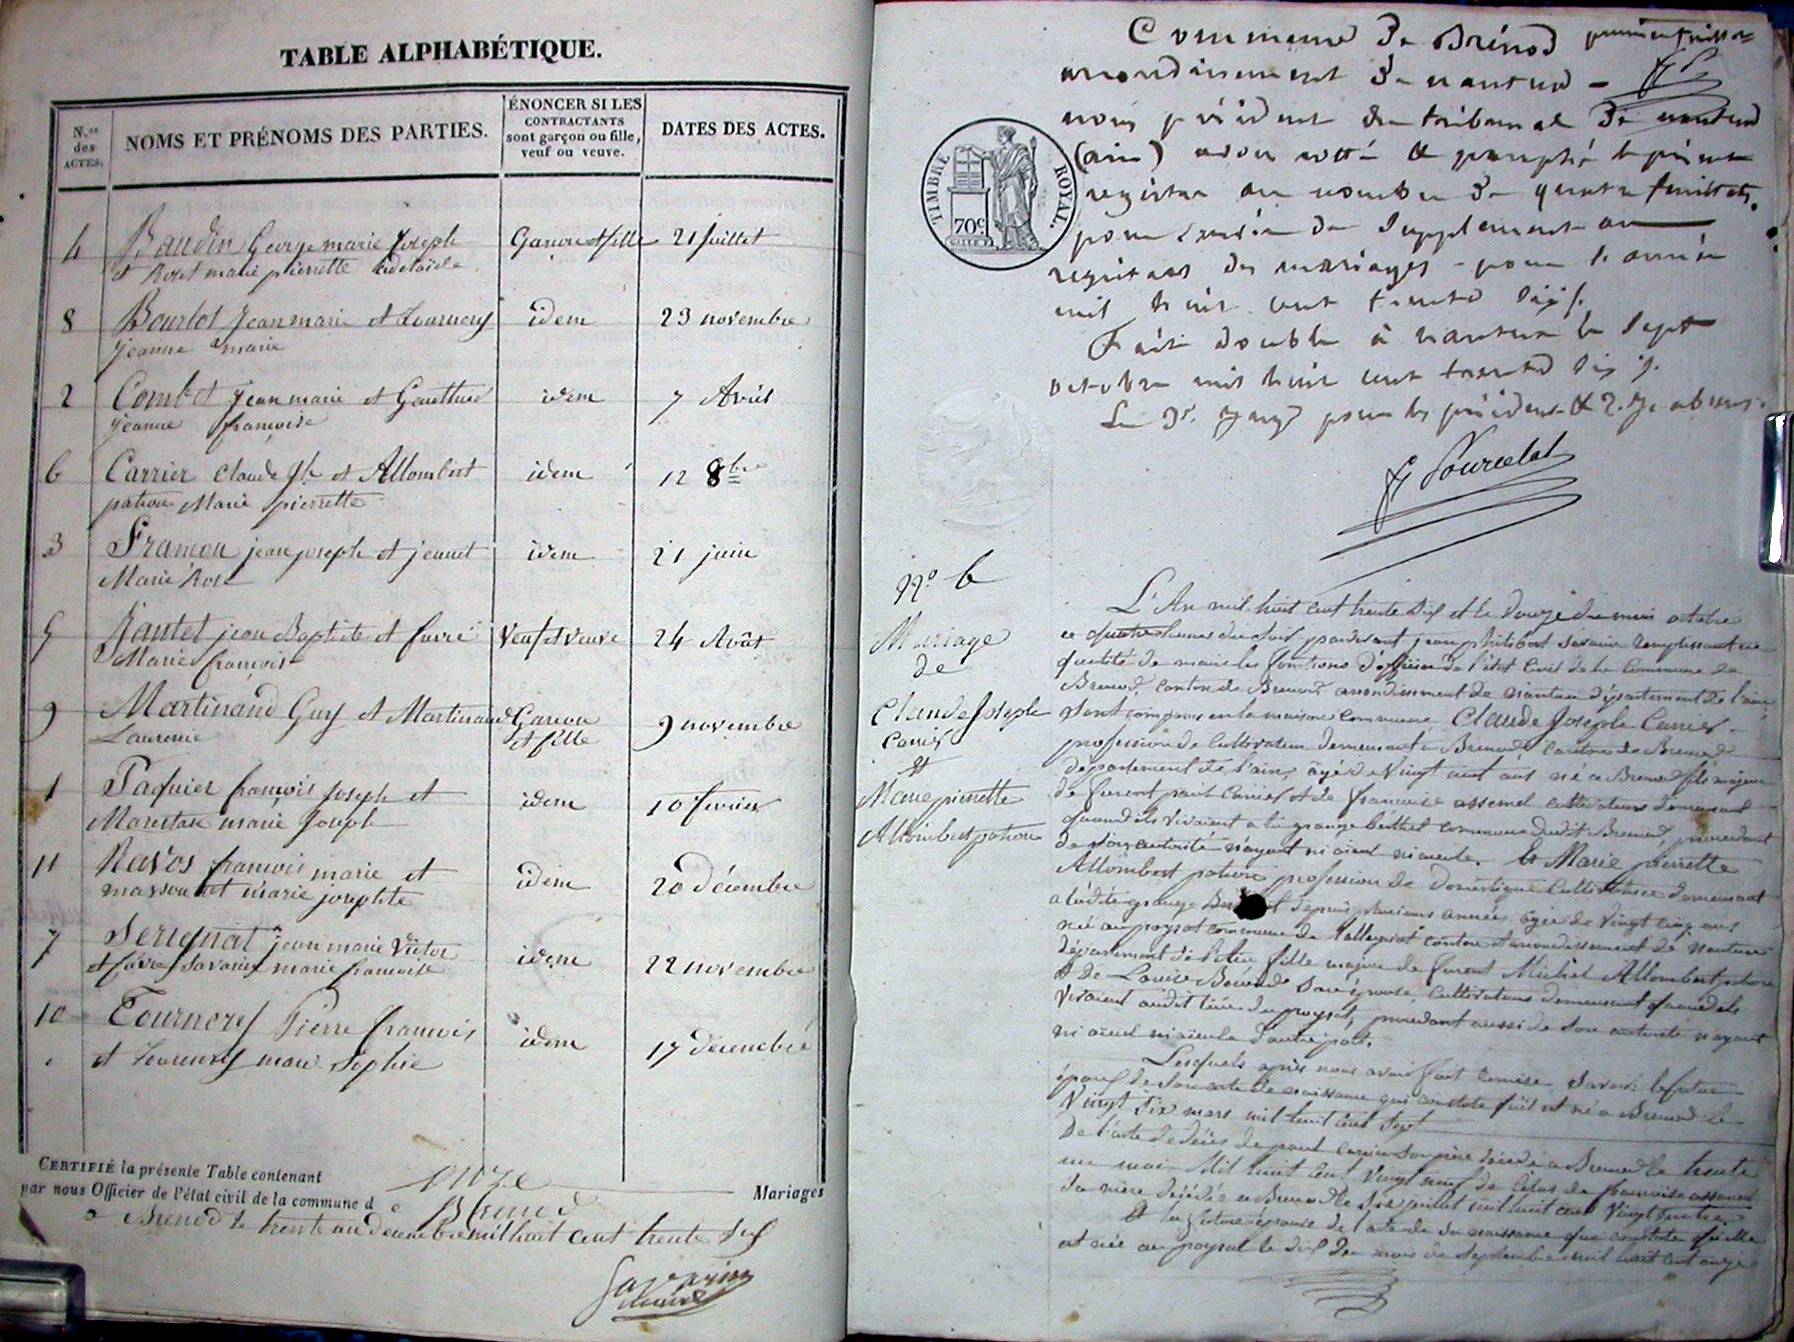 TABLE ALPHABÉTIQUE.
N.os des ACTES.
NOMS ET PRÉNOMS DES PARTIES.
ÉNONCER SI LES
CONTRACTANTS
sont garçon ou fille,
veuf ou veuve.
DATES DES ACTES.
4 Baudin George marie Joseph Garçon et fille 21 Juillet
et Rozet marie pierrette adelaïde
8 Bourlot Jean marie et Tournery idem 23 novembre
Jeanne marie
2 Combet Jean marie et Gauthier idem 7 Avril
Jeanne françoise
6 Carrier Claude Jh et Allombert idem 12 8bre
patron Marie pierrette
3 Framon jean joseph et jeanet idem 21 juin
Marie Rose
5 Jantet jean Baptiste et favre Veuf et Veuve 24 Août
Marie françoise
9 Martinand Guy et Martinand Garçon et fille 9 novembre
Laurence
1 Paquier françois Joseph et idem 10 fevrier
marie Joseph
11 Ravos françois marie et idem 20 décembre
massonnet marie josephte
7 Serignat jean marie Victor idem 22 novembre
et favre Savarin marie françoise
10 Tournery Pierre françois idem 17 décembre
et Tournery marie Sophie
CERTIFIÉ la présente Table contenant onze Mariages
par nous Officier de l'état civil de la commune d e Brenod
a Brenod le trente un Decembre mil huit cent trente six
Savarin
maire
Commune De Brénod premier feuillet
arrondissement De nantua
nous président du tribunal De nantua
(ain) avons cotté & paraphé le présent
registre au nombre De quatre feuillets,
pour servir De Supplément au
registre des mariages pour l'année
mil huit cent trente six.
Fait double à nantua le Sept
octobre mil huit cent trente six.
Le Dr. Juge pour les président & absens.
TIMBRE ROYAL.
70c
N° 6
Mariage
de
Claude Joseph
Carrier
et
Marie pierrette
Allombert patron
L'An mil huit cent trente Six et le Douze du mois octobre
a quatre heures du soir pardevant jean philibert Savarin remplissant en
qualité de maire les fonctions d'officier de l'état Civil de la Commune de
Brenod, Canton de Brenod arrondissement de nantua département de l'ain
Sont comparus en la maison Commune Claude Joseph Carrier
profession de Cultivateur demeurant a Brenod Canton de Brenod
département de l'ain, âgé de Vingt neuf ans né a Brenod fils majeur
de furent paul Carrier et de françoise assernel cultivateurs demeurant
quand ils vivaient a la grange commune dudit Brenod, procedant
de Son autorité n'ayant ni aieul ni aieule. Et Marie pierrette
Allombert patron profession de Domestique Cultivatrice demeurant
a ladite grange depuis plusieurs années âgée de Vingt cinq ans
née au poysat commune de canton et arrondissement de nantua
département de l'Ain fille majeure de furent Michel Allombert patron
et de Louise Son épouse, Cultivateurs demeurant quand ils
Vivaient audit lieu du poysat, procedant aussi de Son autorité n'ayant
ni aieul ni aieule d'autre part.
Lesquels après nous avoir fait remise Savoir: le futur
époux de Son acte de naissance qui constate qu'il est né a Brenod le
Vingt Six mars mil huit cent Sept
De l'acte de décès de paul carrier Son père décédé a Brenod le trente
un mai Mil huit cent Vingt neuf de Celui de françoise assernel
Sa mère décédée a Brenod le Six juillet mil huit cent Vingt
Et la future épouse de l'acte de Sa naissance qui constate qu'elle
est née au poysat le dix du mois de Septembre mil huit cent onze